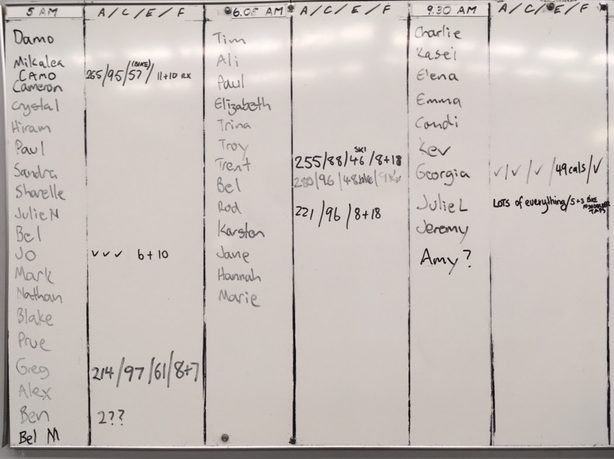 5 AM A/C/E/F
Damo
Mikalea
CAMO
Cameron 255/95/57(BIKE)/11+10 RX
Crystal
Hiram
Paul
Sandra
Sharelle
Julie M
Bel
Jo ✓✓✓ 6+10
Mark
Nathan
Blake
Prue
Greg 214/97/61/8+7
Alex
Ben 2??
Bel M
6.05 AM A/C/E/F
Tim
Ali
Paul
Elizabeth
Trina
Troy
Trent 255/88/46 SKI/8+18
Bel
Rod 221/96/8+18
Karsten
Jane
Hannah
Marie
9.30 AM A/C/E/F
Charlie
Kasei
Elena
Emma
Candi
Kev
Georgia ✓/✓/✓/49cals/✓
Julie L Lots of everything/5+3
Jeremy
Amy?